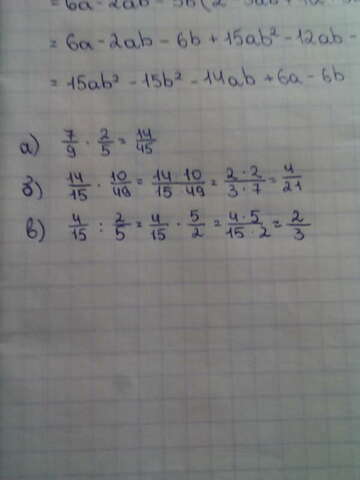 = 6a - 2ab - 
= 6a - 2ab - 6b + 15ab² - 12ab -
= 15ab² - 15b² - 14ab + 6a - 6b
а) 7/9 · 2/5 = 14/45
б) 14/15 · 10/49 = 14 · 10/15 · 49 = 2 · 2/3 · 7 = 4/21
в) 4/15 : 2/5 = 4/15 · 5/2 = 4 · 5/15 · 2 = 2/3